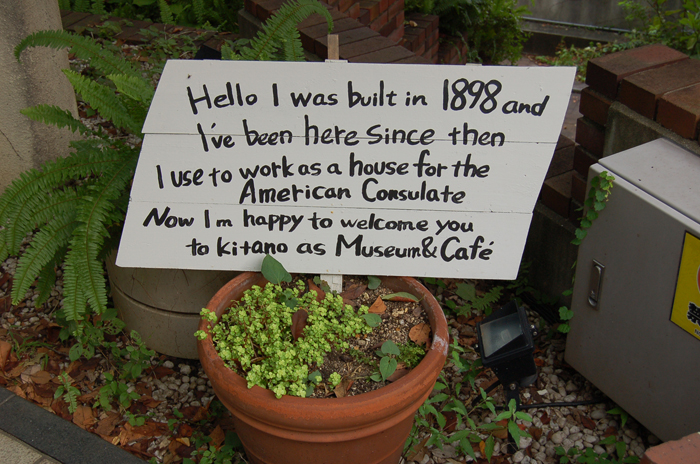 Hello I was built in 1898 and
I've been here since then
I use to work as a house for the
American Consulate
Now Im happy to welcome you
to kitano as Museum & Café